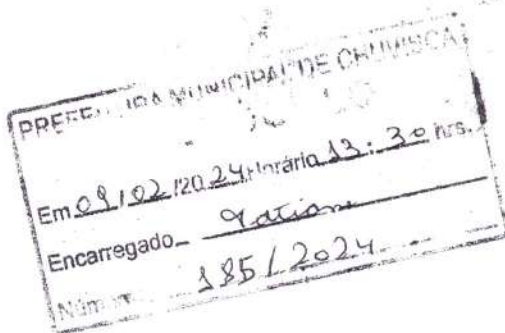 PREFEITURA MUNICIPAL DE CHUVISCA
Em 09/02/2024 Horário 13:30 hrs.
Encarregado Tatiane
Número 185/2024